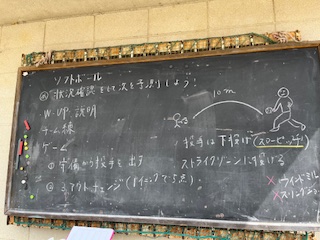 ソフトボール
◎ 状況確認をして次を予測しよう!
W-UP 説明
チーム練
ゲーム
① 守備から投手を出す
② 3アウトチェンジ
10m
投手は下投げ(スローピッチ)
ストライクゾーンに投げる
× ウインドミル
× スリングショ